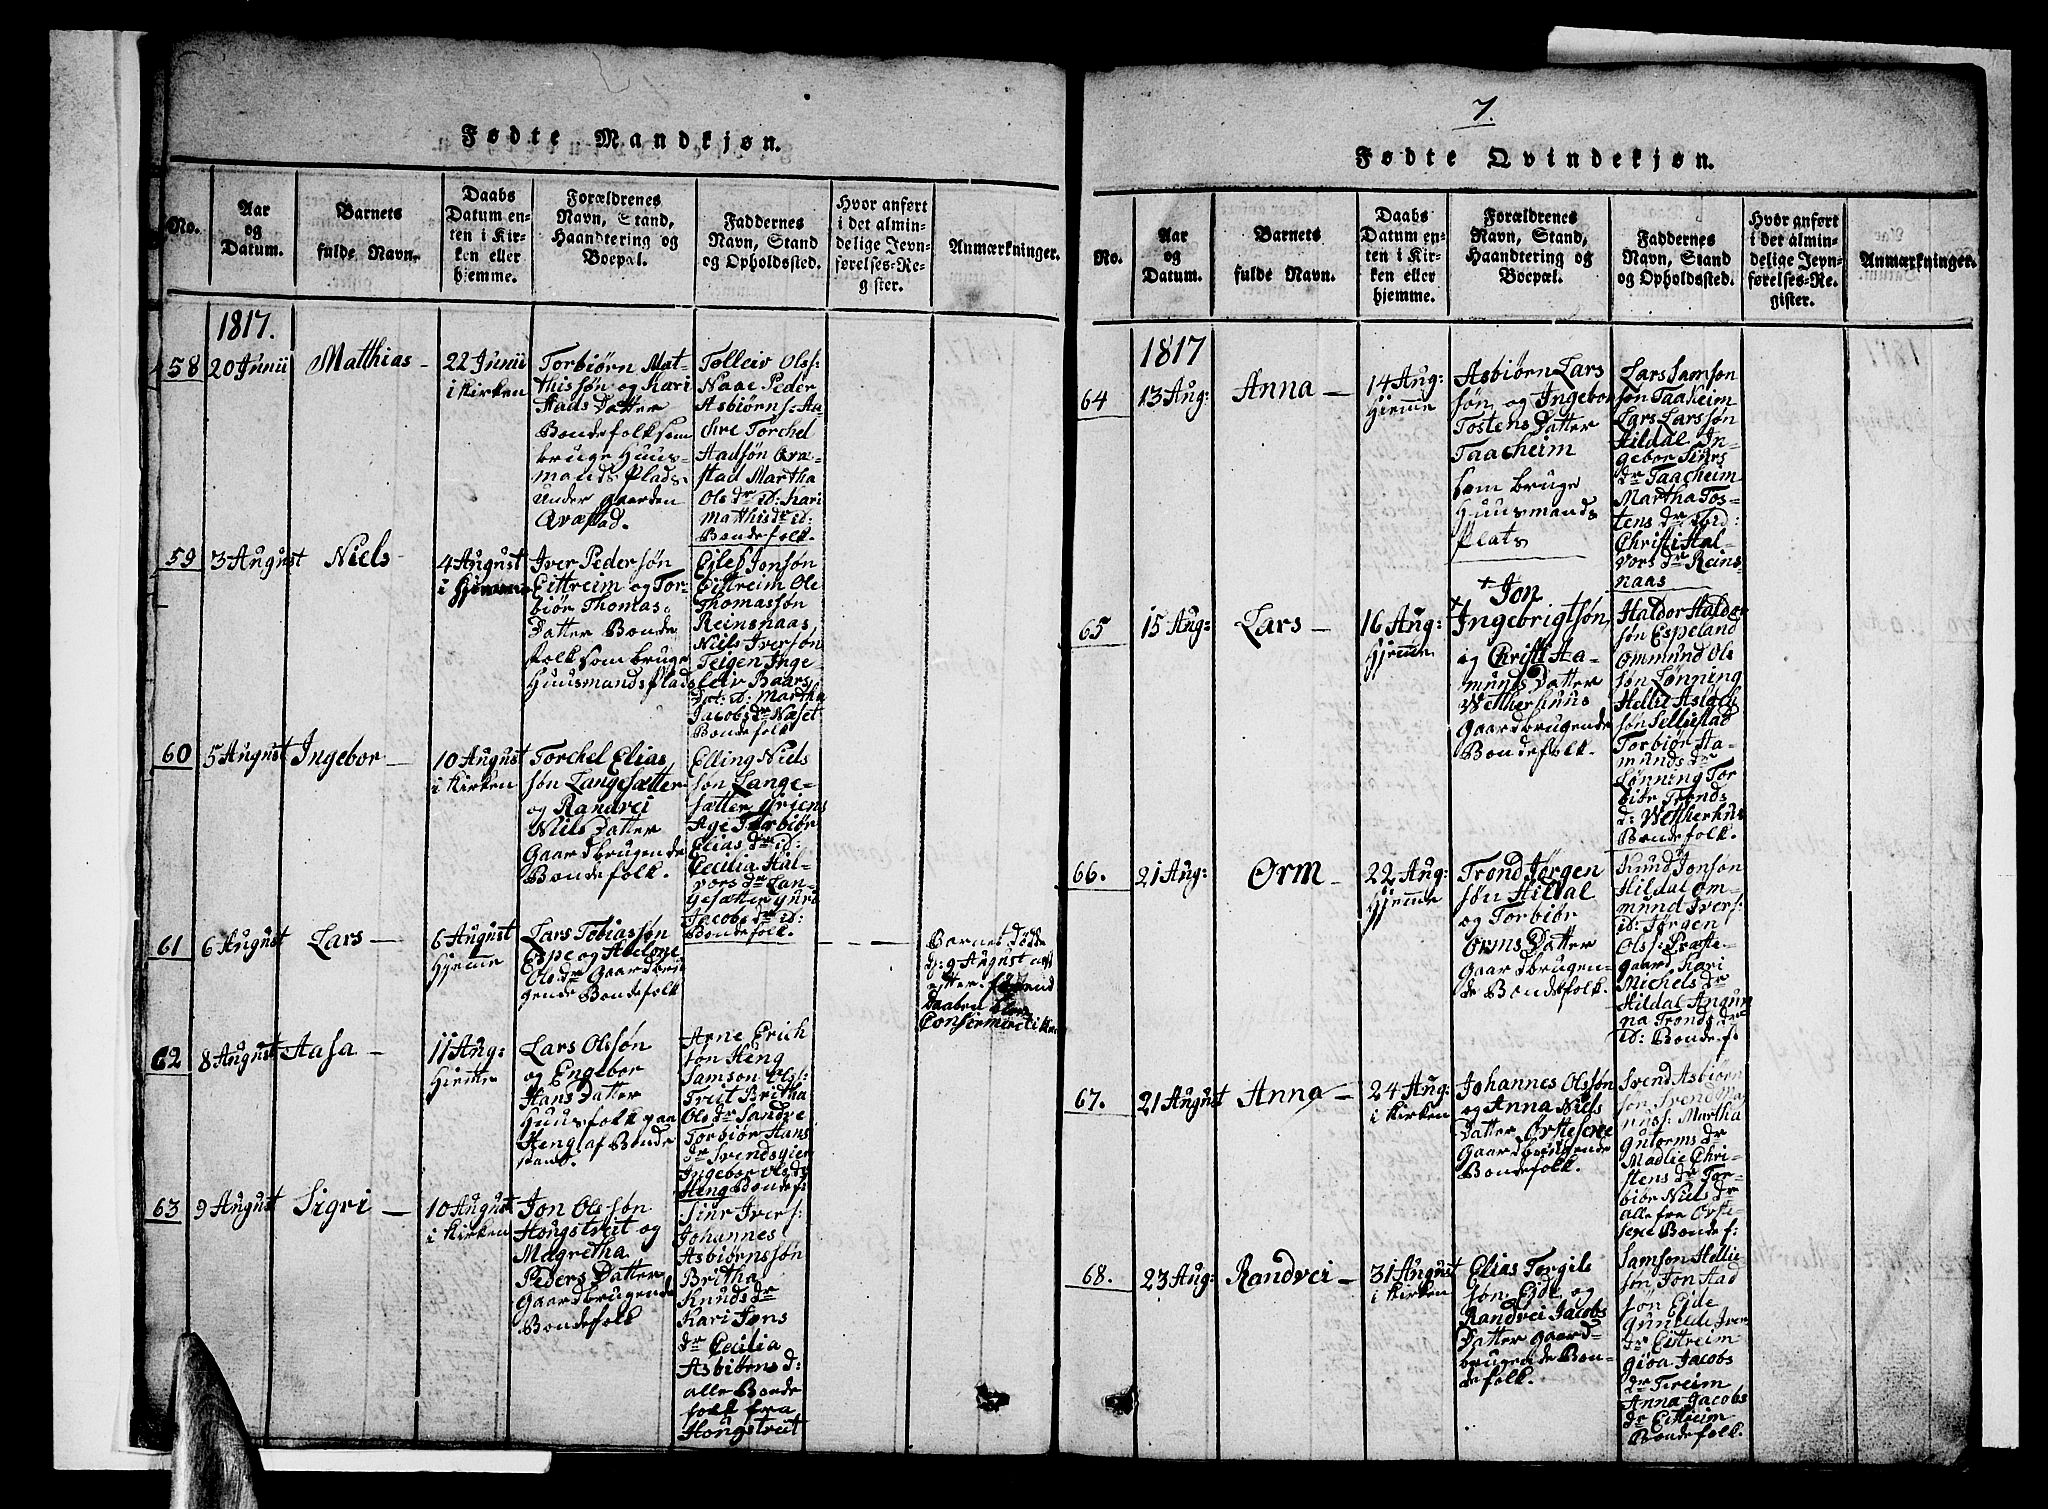 Fødte Mandkjøn.
No.
Aar
og
Datum.
Barnets
fulde Navn.
Daabs
Datum en-
ten i Kir-
ken eller
hjemme.
Forældrenes
Navn, Stand,
Haandtering og
Boepæl.
Faddernes
Navn, Stand
og Opholdssted.
Hvor anført
i det almin-
delige Jevn-
førelses-Re-
gister.
Anmærkninger.
1817.
58
20 Junii
Matthias -
22 Junii
i Kirken
Torbiørn Mat-
thissøn og Kari
Aads Datter
Bondefolk som
bruge Huus-
mands Plads
under gaarden
Qvæstad.
Tolleiv Ols:
Naae Peder
Asbiørns: Aa-
Torchel
Aadsøn Qvæ-
stad Martha
Ols dr id: Kari
Matthis dr id:
Bondefolk.
59
3 August
Niels
4 August
i Hjemme
Iver Pedersøn
Eittreim og Tor-
biør Thomas
Datter Bonde
folk som bruge
Huusmands Plads
Eilef Jonsøn
Eittreim Ole
Thomassøn
Reinsnaas
Niels Iversøn
Teigen Inge-
leiv Baars
Dat: id: Martha
Jacobs dr Naset
Bondefolk
60
5 August
Ingebor -
10 August
i Kirken
Torchel Elias
søn Langesætter
og Randvei
Niels Datter
Gaardbrugende
Bondefolk.
Elling Niels
søn Lange-
sætter
Age Torbiør
Elias dr id:
Cecilia Hal-
vors dr Lan-
gesætter Guro
Jacobs dr id:
Bondefolk.
61
6 August
Lars -
6 August
Hjemme
Lars Tobiassøn
Espe og
Ols dr Gaardbru
gende Bondefolk
Barnet døde
d: 9 August
efter
Daaben blev
62
8 August
Aasa -
11 Aug:
Hiemme
Lars Olssøn
og Engebor
Hans Datter
Huusfolk paa
Heng af Bonde
stand.
Arne Erich
søn Heng
Samson Ols:
Treit Britha
Ols dr Sandve
Torbiør Hans
dr
Ingebor Ols dr
Heng Bondef:
63
9 August
Sigri -
10 August
i Kirken
Jon Olssøn
Hougstveit og
Magretha
Peders Datter
Gaardbrugende
Bondefolk
Iver:
Johannes
Asbiørnssøn
Britha
Knuds dr
Kari Jons
dr Cecilia
Asbiørns d:
alle Bonde
folk fra
Hougstveit
7.
Fødte Qvindekjøn.
No.
Aar
og
Datum.
Barnets
fulde Navn.
Daabs
Datum en-
ten i Kir-
ken eller
hjemme.
Forældrenes
Navn, Stand,
Haandtering og
Boepæl.
Faddernes
Navn, Stand
og Opholdssted.
Hvor anført
i det almin-
delige Jevn-
førelses-Re-
gister.
Anmærkninger.
1817
64
13 Aug:
Anna -
14 Aug:
Hiemme
Asbiørn Lars
søn og Ingebor
Tostens Datter
Taacheim
som bruge
Huusmands
Plats
Lars Samson
søn Taaheim
Lars Larssøn
Hildal In-
gebor
dr Taacheim
Martha Tos-
tens dr
Christi Hal-
vors dr Reins-
naas
65
15 Aug:
Lars -
16 Aug:
Hjemme
+ Jon
+ Ingebrigtsøn
og Christi Aa-
munds Datter
Wetherhuus
gaardbrugende
Bondefolk.
Haldor Haldor
søn Espeland
Ommund Ols
søn Lønning
Hellie Aslach
søn Selliestad
Torbiør Aa-
munds dr
Lønning Tor
biør Tronds
d: Wetherhus
Bondefolk.
66.
21 Aug:
Orm -
22 Aug:
Hjemme
Trond Jørgen
søn Hildal
og Torbiør
Orms Datter
Gaardbrugen-
de Bondefolk.
Knud Jonsøn
Hildal Om-
mund Ivers:
id: Jørgen
Ols: Præste-
gaard Kari
Michels dr
Hildal Angun
na Tronds dr
id: Bondef:
67.
21 August
Anna -
24 Aug:
i Kirken
Johannes Olssøn
og Anna Niels
Datter
Gaardbrugende
Bondefolk.
Svend Asbiørn
søn Svend Ma
nus: Martha
Gutorms dr
Madlie Chri-
stens dr Tor-
biør Niels dr
alle fra
Bondef:
68.
23 Aug:
Randvei -
31 August
i Kirken
Elias Torgils
søn Eide og
Randvei Jacobs
Datter gaard-
brugende Bon-
defolk.
Samson Hellie
søn Jon Aad
søn Eide
Gunilde Iver
dr Eittreim
Giøa Jacobs
dr Freim
Anna Jacobs
dr Eittreim
Bondefolk.